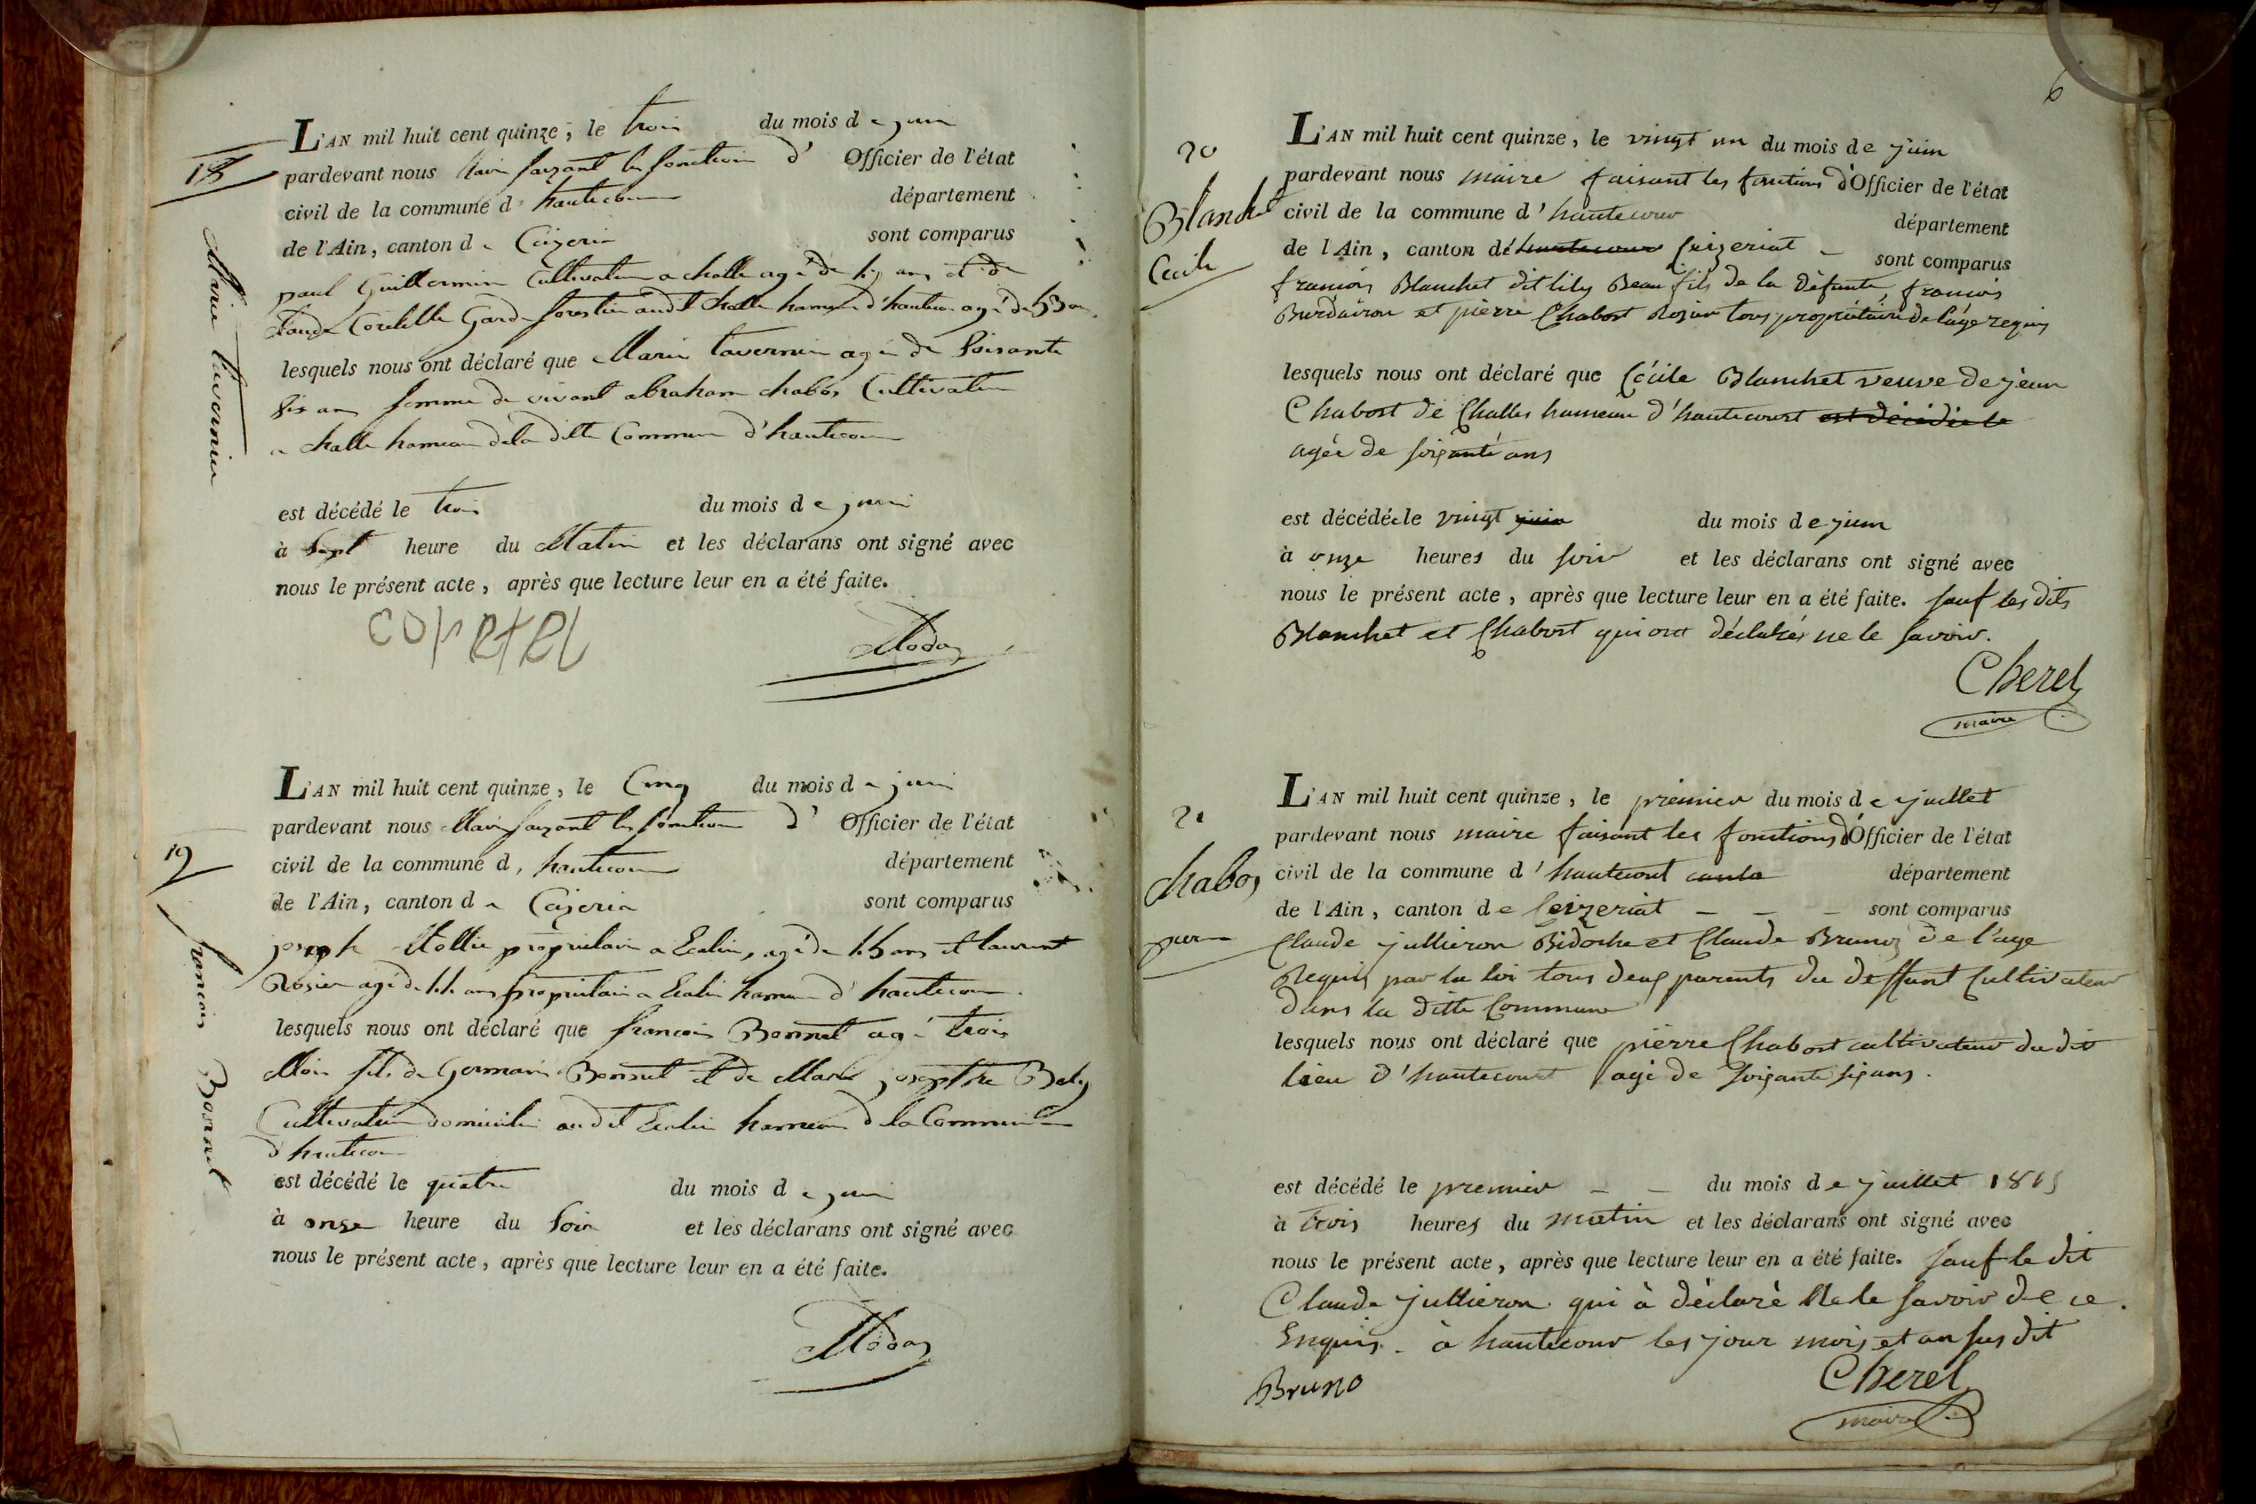 18
Marie tavernier
L'AN mil huit cent quinze, le trois du mois de juin
pardevant nous Maire fayzant les fonction d' Officier de l'état
civil de la commune d' hautecour département
de l'Ain, canton de Ceizeria sont comparus
paul Guillermin Cultivateur a challe agé de ans et de
Claude Gardе forestier audit challe hameau d'hautecour agé de
lesquels nous ont déclaré que Marie tavernier agée de soisante
six ans femme de vivant abraham chabos Cultivateur
a challe hameau de la ditte Commune d'hautecour
est décédé le trois du mois de juin
à sept heure du Matin et les déclarans ont signé avec
nous le présent acte, après que lecture leur en a été faite.
Modas
19
francois Bonnet
L'AN mil huit cent quinze, le Cinq du mois de juin
pardevant nous Maire fayzant les fonction d' Officier de l'état
civil de la commune d, hautecour département
de l'Ain, canton de Ceizeria sont comparus
joseph propriétaire a agé de ans et laurent
Rosier agé de ans propriétaire a hameau d'hautecour
lesquels nous ont déclaré que francois Bonnet agé trois
Mois fils de Germain Bonnet et de Marie josephte
Cultivateur domicilié audit hameau de la Commune
d'hautecour
est décédé le quatre du mois de juin
à onze heure du soir et les déclarans ont signé avec
nous le présent acte, après que lecture leur en a été faite.
Modas
6
20
Blanchet
Cecile
L'AN mil huit cent quinze, le vingt un du mois de juin
pardevant nous maire faisant les fonctions d'Officier de l'état
civil de la commune d'hautecour département
de l'Ain, canton de hautecour Ceizeriat sont comparus
francois Blanchet dit lily Beau fils de la défunte, francois
Burdairon et pierre Chabost Rosier tous propriétaire de l'age requis
lesquels nous ont déclaré que Cécile Blanchet veuve de jean
Chabost de Challes hameau d'hautecourt est décédée le
agée de soixante ans
est décédée le vingt juin du mois de juin
à onze heures du soir et les déclarans ont signé avec
nous le présent acte, après que lecture leur en a été faite. sauf les dits
Blanchet et Chabost qui ont déclarés ne le savoir.
Cherel
maire
21
chabos
pierre
L'AN mil huit cent quinze, le premier du mois de juillet
pardevant nous maire faisant les fonctions d'Officier de l'état
civil de la commune d'hautecourt département
de l'Ain, canton de Ceizeriat sont comparus
Claude jullieron Bidoche et Claude Brunoz de l'age
Requis par la loi tous deux parents du deffunt Cultivateur
dans la ditte Commune
lesquels nous ont déclaré que pierre Chabost cultivateur du dit
lieu d'hautecourt agé de soixante six ans.
est décédé le premier du mois de juillet 1815
à trois heures du matin et les déclarans ont signé avec
nous le présent acte, après que lecture leur en a été faite. sauf le dit
Claude jullieron qui à déclaré Ne le savoir de ce
Enquis. à hautecour les jour mois et an sus dit
Bruno
Cherel
maire